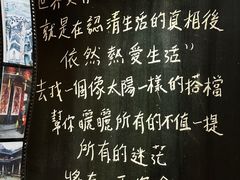 就是在認清生活的真相後
依然熱愛生活"
去找一個像太陽一樣的搭檔
幫你曬曬所有的不值一提
所有的迷茫